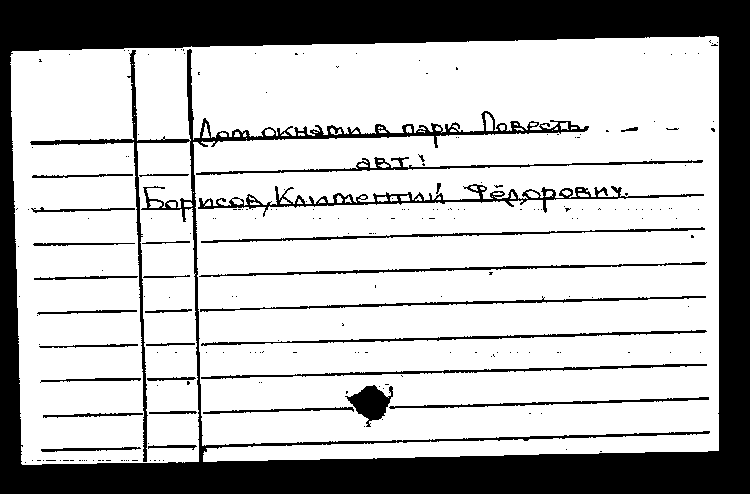 Дом окнами в парк. Повесть
авт.:
Борисов, Климентий Фёдорович.